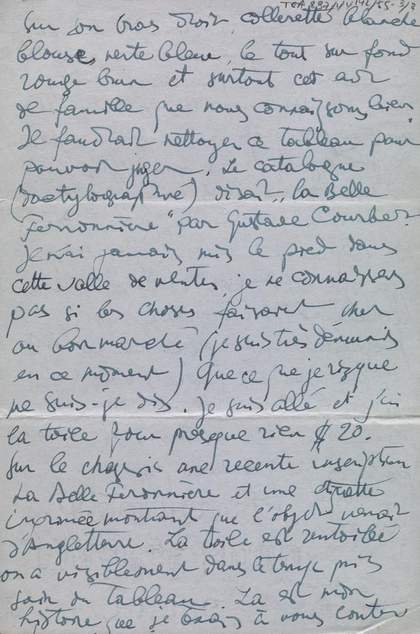 sur son bras droit, collerette blanche
blouse verte bleue, le tout sur fond
rouge brun et surtout cet air
de famille que nous connaissons bien.
Il faudrait nettoyer ce tableau pour
pouvoir juger. Le catalogue
(dactylographié) disait "la Belle
Ferronnière" par Gustave Courbet.
Je n'ai jamais mis le pied dans
cette salle de ventes, je ne connaissais
pas si les choses faisaient cher
ou bon marché (je suis très démunis
en ce moment) Qu'est ce que je risque
me suis-je dis. Je suis allé et j'ai
la toile pour presque rien $ 20.
Sur le chassis une recente inscription
La Belle Feronnière et une etiquette
imprimée montrant que l'objet venait
d'Angleterre. La toile est rentoilée
on a visiblement dans le temps pris
soin du tableau. La est mon
histoire que je tenais à vous conter